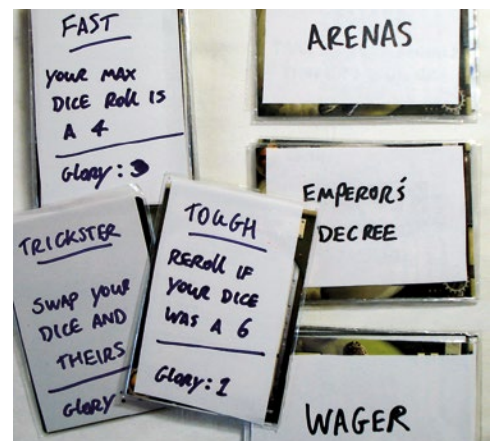 FAST
YOUR MAX
DICE ROLL IS
A 4
GLORY: 3
TRICKSTER
SWAP YOUR
DICE AND
THEIRS
GLORY
TOUGH
REROLL IF
YOUR DICE
WAS A 6
GLORY: 1
ARENAS
EMPEROR'S
DECREE
WAGER